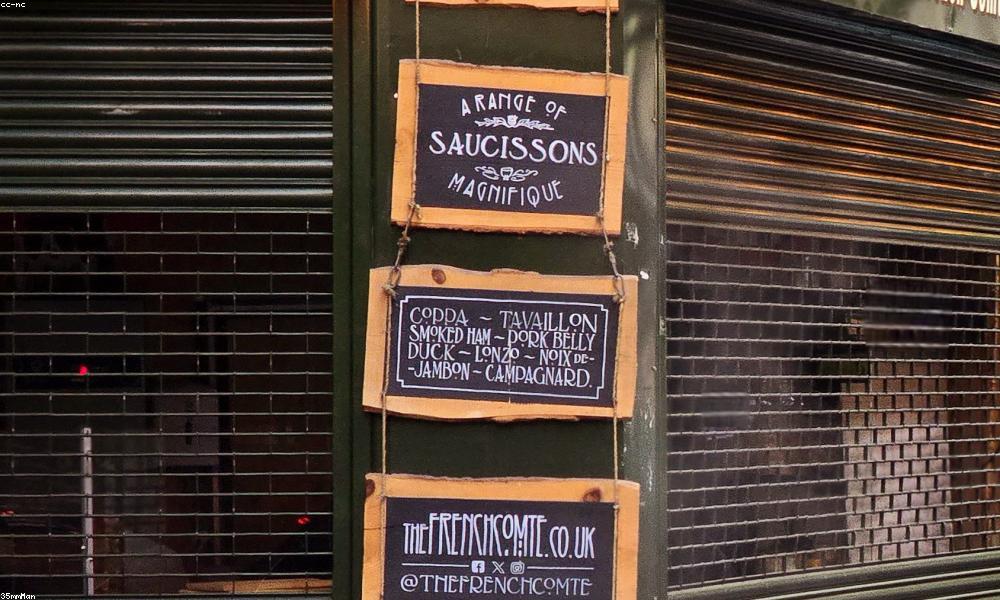 cc-nc
A RANGE OF
SAUCISSONS
MAGNIFIQUE
COPPA ~ TAVAILLON
SMOKED HAM ~ PORK BELLY
DUCK ~ LONZO ~ NOIX DE-
-JAMBON ~ CAMPAGNARD.
THEFRENCHCOMTE.CO.UK
@THEFRENCHCOMTE
35mmMan